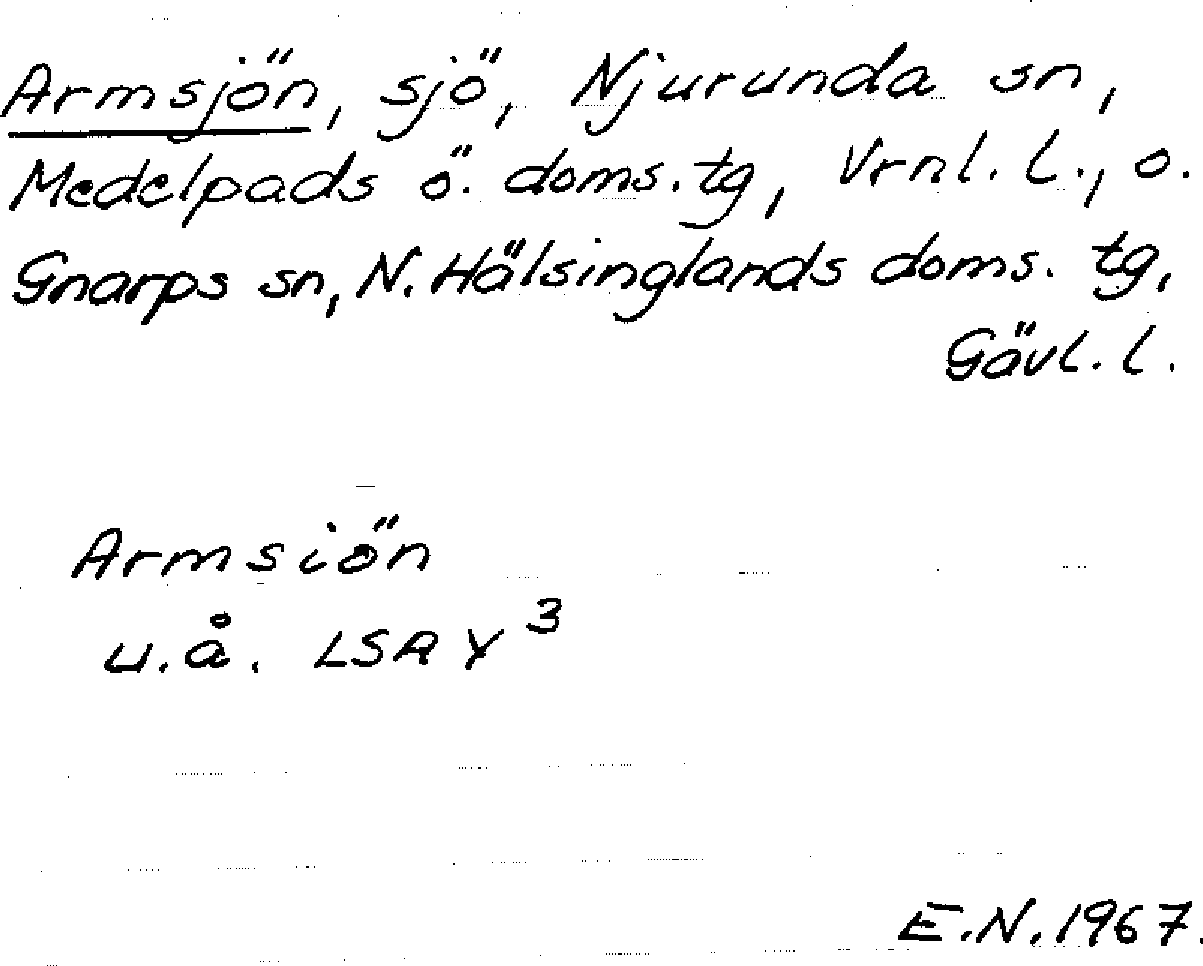 Armsjön, sjö, Njurunda sn,
Medelpads ö. doms. tg, Vrnl. l., o.
Gnarps sn, N. Hälsinglands doms. tg,
Gävl. l.
Armsiön
u.å. LSA Y³
E.N. 1967.